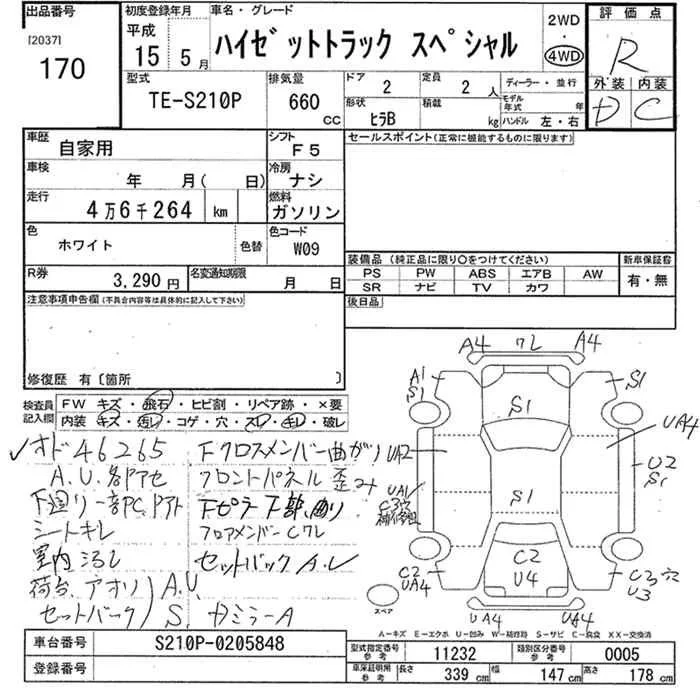 出品番号 初度登録年月 車名・グレード 評価点
[2037]
170
平成 15 5月
ハイゼットトラック スペシャル
2WD・4WD
R
型式 排気量 ドア 定員 ディーラー・並行 外装 内装
TE-S210P 660 CC 2 2人 モデル年式 年
形状 ヒラB 積載 kg ハンドル 左・右
D C
車歴 自家用 シフト F5 セールスポイント(正常に機能するものに限ります)
車検 年 月( 日) 冷房 ナシ
走行 4万6千264 km 燃料 ガソリン
色 ホワイト 色替 色コード W09
装備品 (純正品に限り○をつけてください) 新車保証書
PS PW ABS エアB AW 有・無
SR ナビ TV カワ
R券 3,290円 名変通知期限 月 日
後日品
注意事項申告欄(不具合内容等は具体的に記入して下さい)
修復歴 有〔箇所 〕
検査員記入欄
FW キズ・飛石・ヒビ割・リペア跡・×要
内装 キズ・汚レ・コゲ・穴・スレ・キレ・破レ
✓オド46265 Fクロスメンバー曲がり
A.U.各部アセ フロントパネル 歪み
下廻り一部PC.アト Fピラー下部曲り
シートキレ フロアメンバーCワレ
室内汚レ セットバックA.U
荷台.アオリ)A.U.
セットバック)S. カミラーA
A4 ワレ A4
A1 S1 S1
S1
UA2 UA4
UA1 C3穴 U2 S1
S1
C2 UA4 C2 U4 C3穴 U3
スペア UA4 UA4
A-キズ E-エクボ U-凹み W-補修跡 S-サビ C-腐食 XX-交換済
車台番号 S210P-0205848
登録番号
型式指定番号 参考 11232 類別区分番号 参考 0005
車庫証明用 参考 長さ 339 cm 幅 147 cm 高さ 178 cm